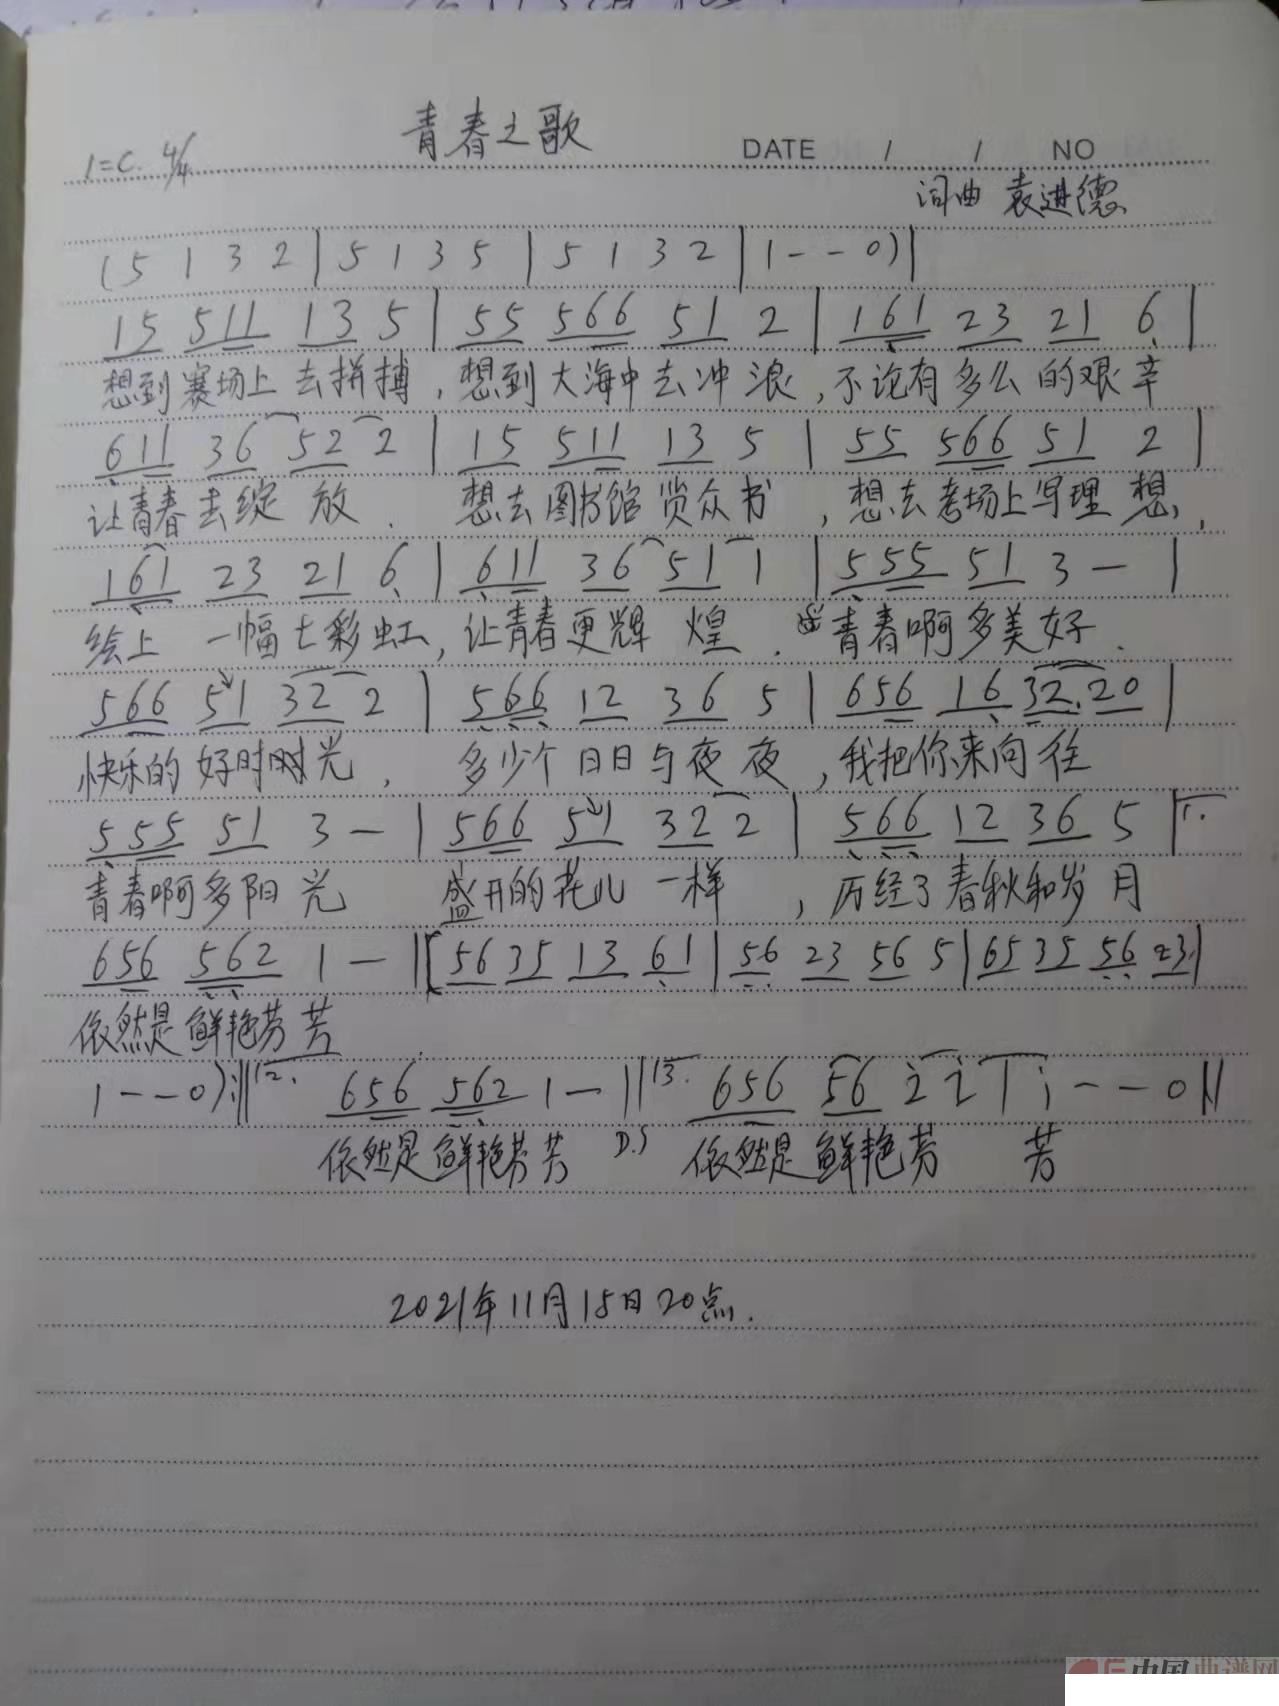 青春之歌
DATE / / NO
1=C. 4/4
词曲 袁进德
(5 1 3 2 | 5 1 3 5 | 5 1 3 2 | 1 - - 0) |
15 511 13 5 | 55 566 51 2 | 161 23 21 6 |
想到赛场上去拼搏,想到大海中去冲浪,不论有多么的艰辛
611 36 52 2 | 15 511 13 5 | 55 566 51 2 |
让青春去绽放. 想去图书馆赏众书,想去考场上写理想,
161 23 21 6 | 611 36 51 1 | 555 51 3 - |
绘上一幅七彩虹,让青春更辉煌. 青春啊多美好.
566 51 32 2 | 566 12 36 5 | 656 16 32.20 |
快乐的好时光, 多少个日日与夜夜,我把你来向往
555 51 3 - | 566 51 32 2 | 566 12 36 5 | 1.
青春啊多阳光 盛开的花儿一样,历经了春秋和岁月
656 562 1 - | [56 35 13 61 | 56 23 56 5 | 65 35 56 23 |
依然是鲜艳芬芳
1 - - 0) :|| 2. 656 562 1 - || 3. 656 56 2 2 | 1 - - 0 ||
依然是鲜艳芬芳 D.S 依然是鲜艳芬 芳
2021年11月15日20点.
中国曲谱网